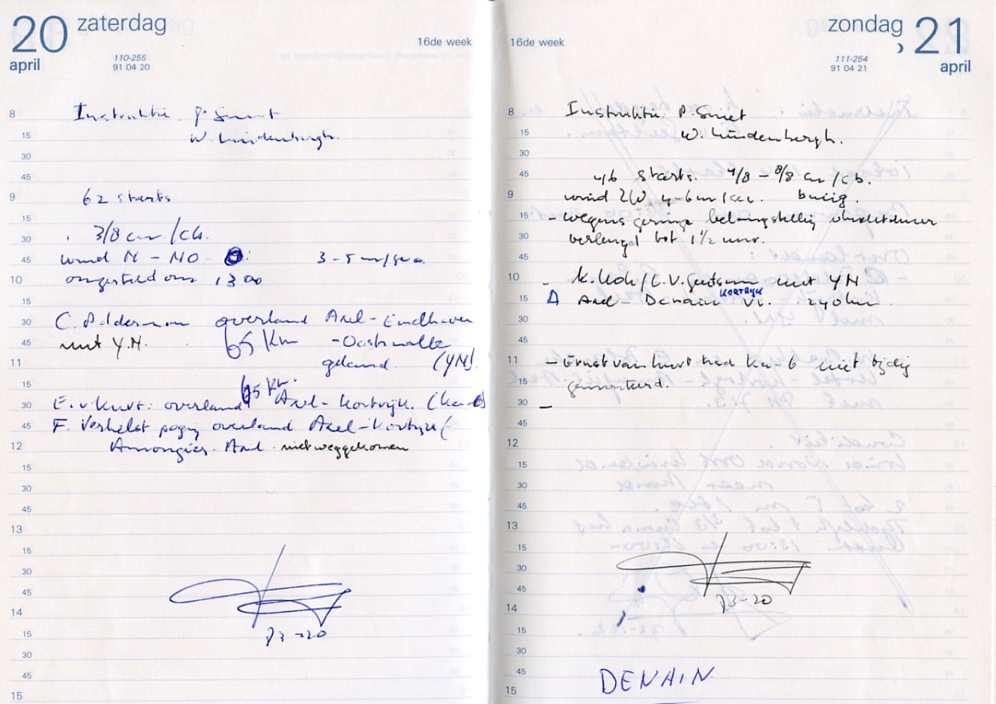 20 zaterdag
april
110-255
91 04 20
16de week
8 Instruktie P. Smet
15 W. Lindenbergh.
30
45
9 62 starts
15
30 3/8 cu/cb.
45 wind N - NO 3-5 m/sec
10 omgesteld om 1300
15
30 overland Axel-Eindhoven
45 met YN. 65 Km - Oostmalle
11 geland (YN).
15 65 Km.
30 E. v Hurt: overland Axel-Kortrijk. (
45 F. Verhelst overland Axel-Kortrijk (
12 Axel niet weggekomen
15
30
45
13
15
30
45
14
15
30
45
15
zondag 21
april
111-254
91 04 21
16de week
8 Instruktie P. Smet
15 W. Lindenbergh.
30
45 46 starts. 7/8 - 8/8 cu/cb.
9 wind ZW 4-6 m/sec. buiig.
15 - wegens geringe belangstelling
30 verlengd tot 1 1/2 uur.
45
10 - met YN
KORTRIJK
15 Δ Axel Denain VV. 240 km
30
45
11 - Ernst van Hurt had Ka-6 niet tijdig
15 gemonteerd.
30 -
45
12
15
30
45
13
15
30
45
14
15
30
45 DENAIN
15